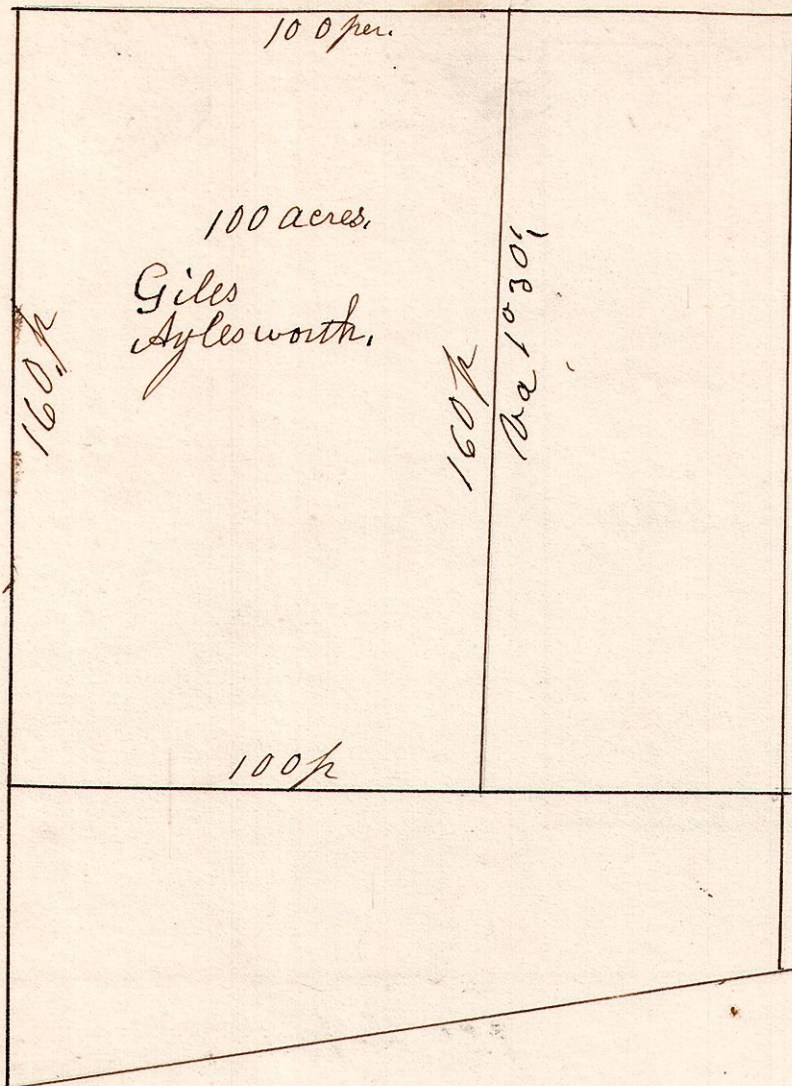 100 per.
100 acres.
Giles
Aylesworth.
160 p
160 p
Va 1° 30'
100 p